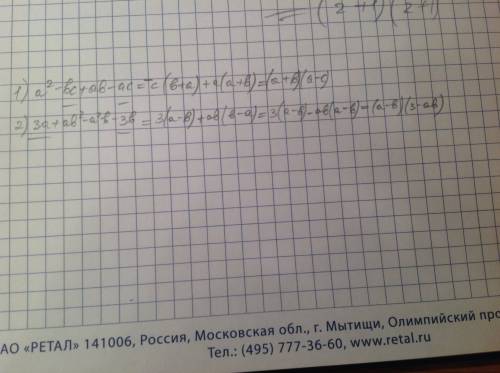 = (z+1)(z+1)
1) a² - bc + ab - ac = -c(b+a) + a(a+b) = (a+b)(a-c)
2) 3a + ab² - a²b - 3b = 3(a-b) + ab(b-a) = 3(a-b) - ab(a-b) = (a-b)(3-ab)
АО «РЕТАЛ» 141006, Россия, Московская обл., г. Мытищи, Олимпийский про
Тел.: (495) 777-36-60, www.retal.ru